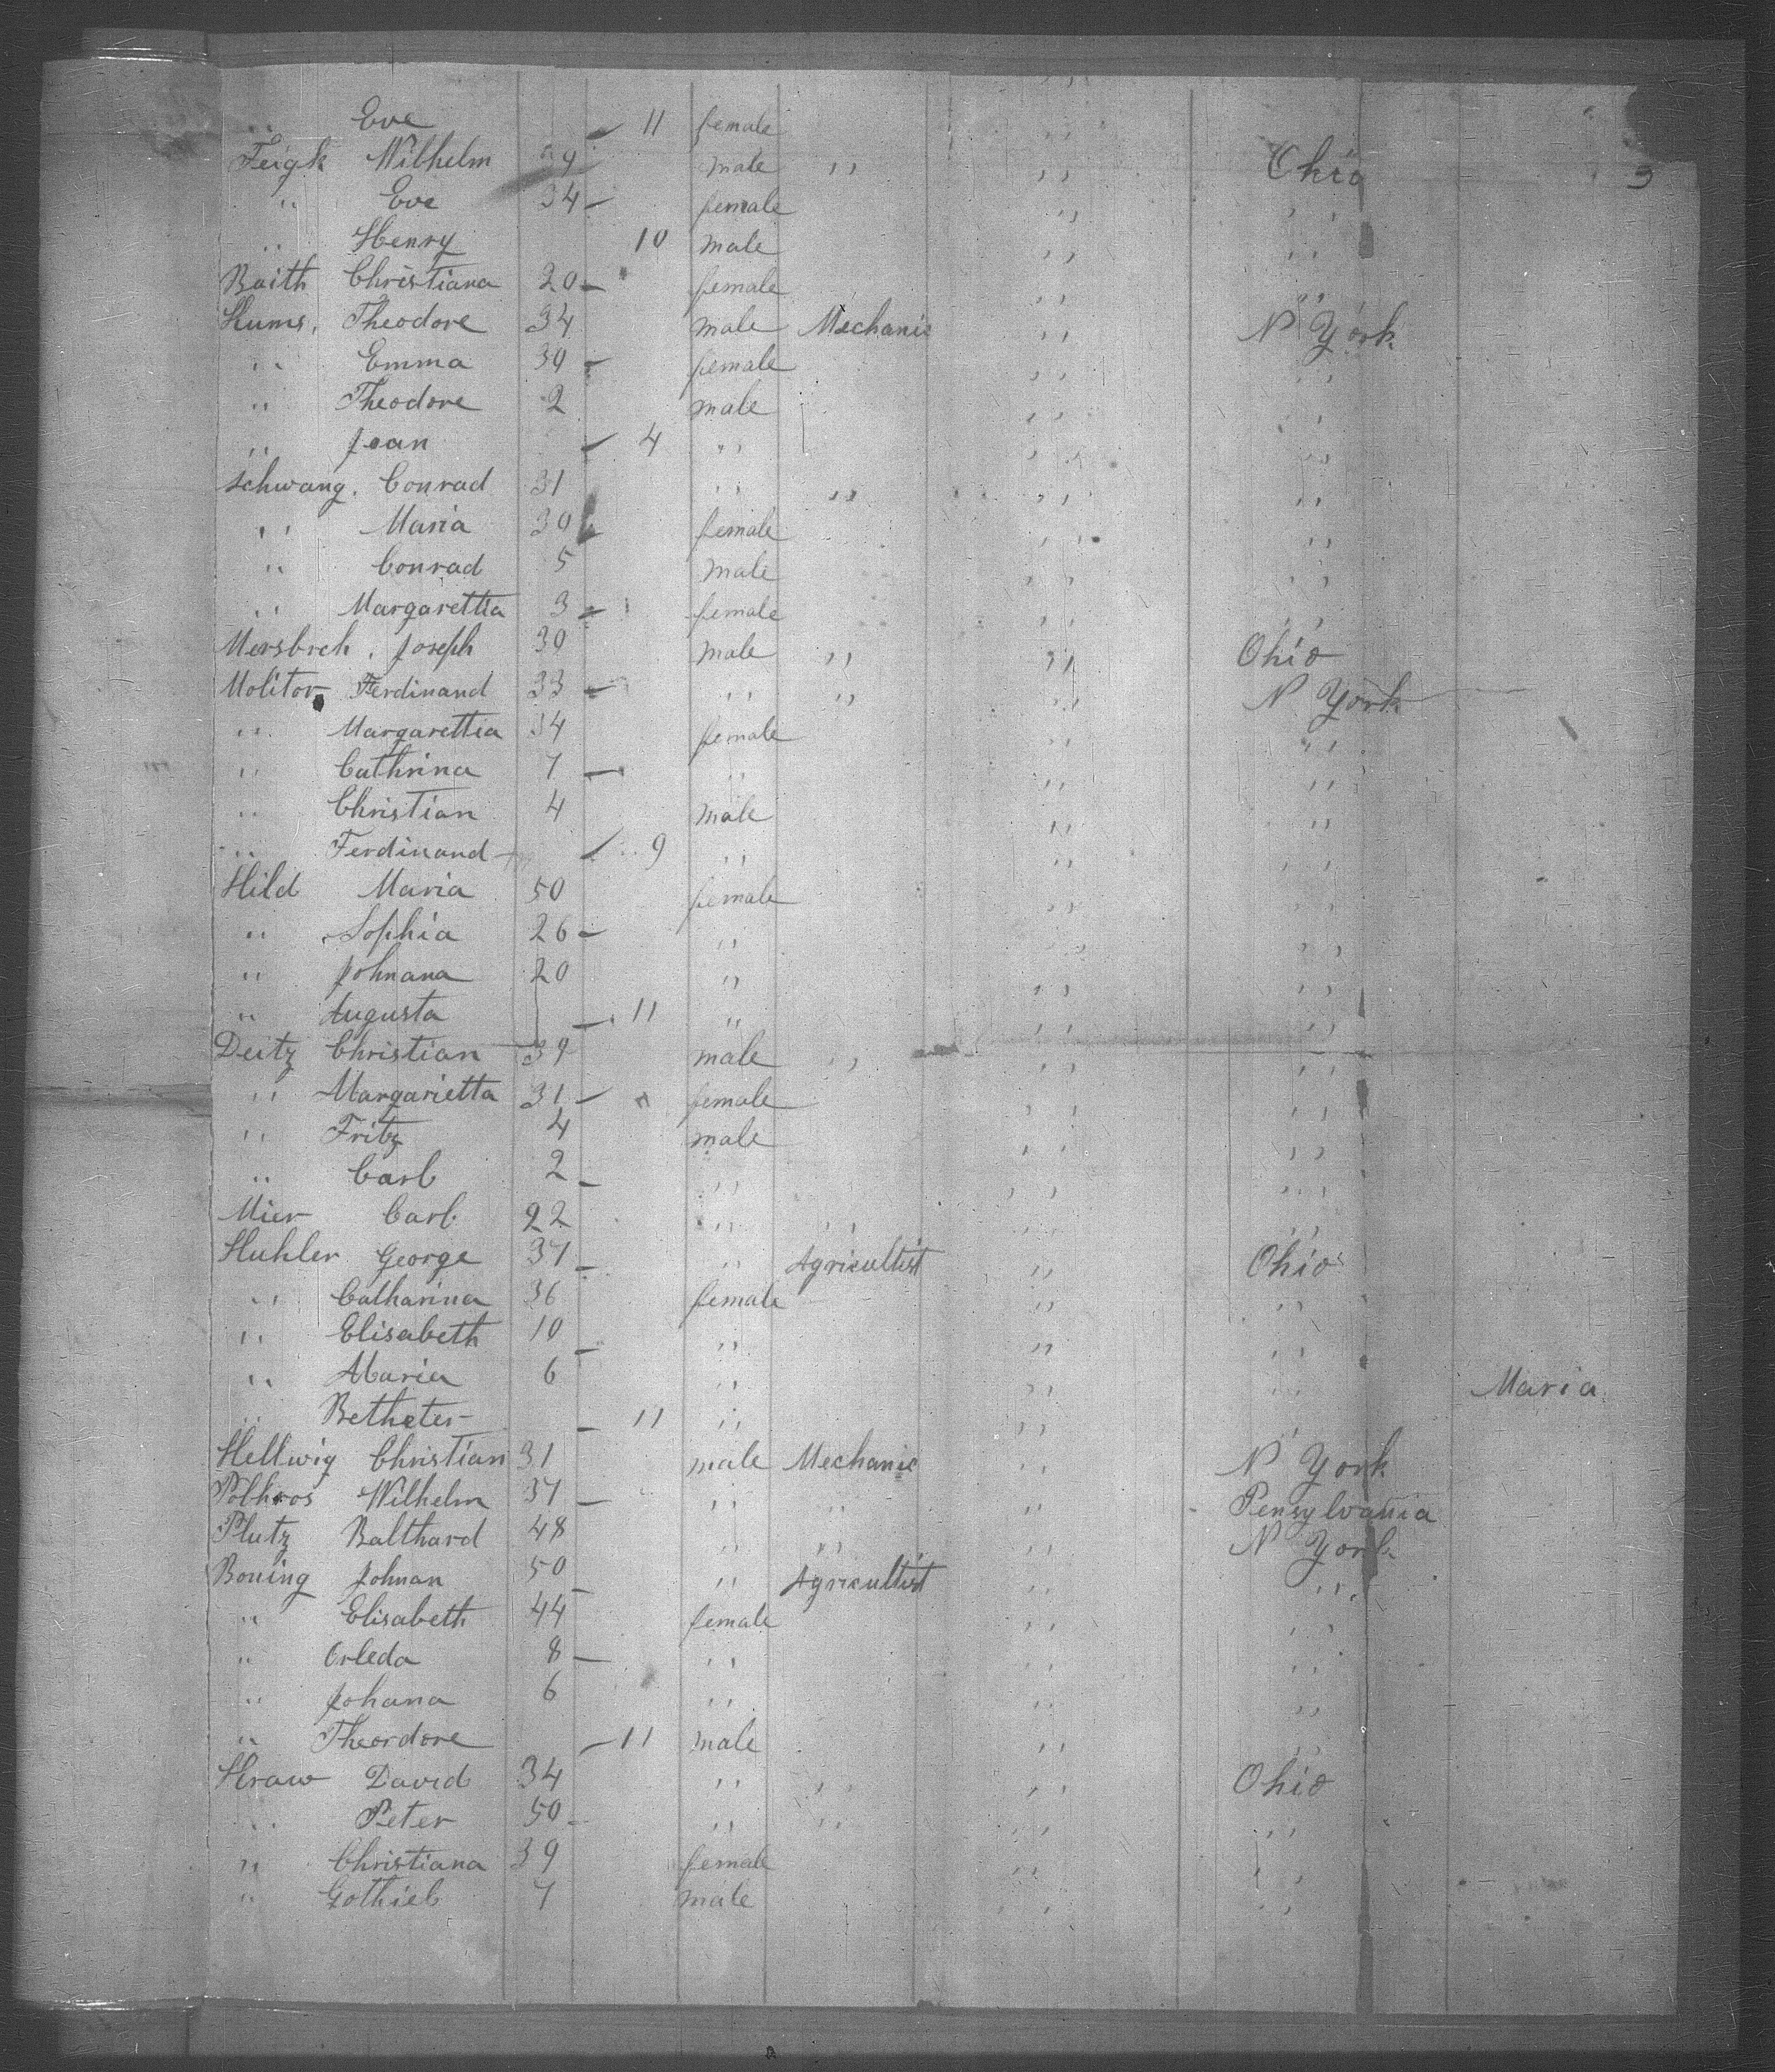 " Eve 11 female "
Feigk Wilhelm 39 male " " Ohio 3
" Eve 34 female " "
" Henry 10 male " "
Baith Christiana 20 female " "
Kums, Theodore 34 male Mechanic " N York
" Emma 30 female " "
" Theodore 2 male " "
" Jean 4 " " "
Schwang. Conrad 31 " " " "
" Maria 30 female " "
" Conrad 5 male " "
" Margarettia 3 female " "
Mersbreh. Joseph 30 male " " Ohio
Molitor Ferdinand 33 " " " N York
" Margarettia 34 female " "
" Cathrina 7 " " "
" Christian 4 male " "
" Ferdinand 9 " " "
Hild Maria 50 female " "
" Sophia 26 " " "
" Johnana 20 " " "
" Augusta 11 " " "
Deitz Christian 39 male " " "
" Margarietta 31 female " "
" Fritz 4 male " "
" Carl 2 " " "
Mier Carl 22 " " " "
Huhler George 37 " Agricultist " Ohio
" Catharina 36 female " "
" Elisabeth 10 " " "
" Maria 6 " " " Maria
" Betheter 11 " "
Hellwig Christian 31 male Mechanic " N York
Wilhelm 37 " " " Pensylvania
Plutz Balthard 48 " " " N York
Boning Johnan 50 " Agricultist " "
" Elisabeth 44 female " "
" Orleda 8 " " "
" Johana 6 " " "
" Theordore 11 male " "
Hraw David 34 " " " Ohio
" Peter 50 " " " "
" Christiana 39 female " "
" Gothieb 7 male " "